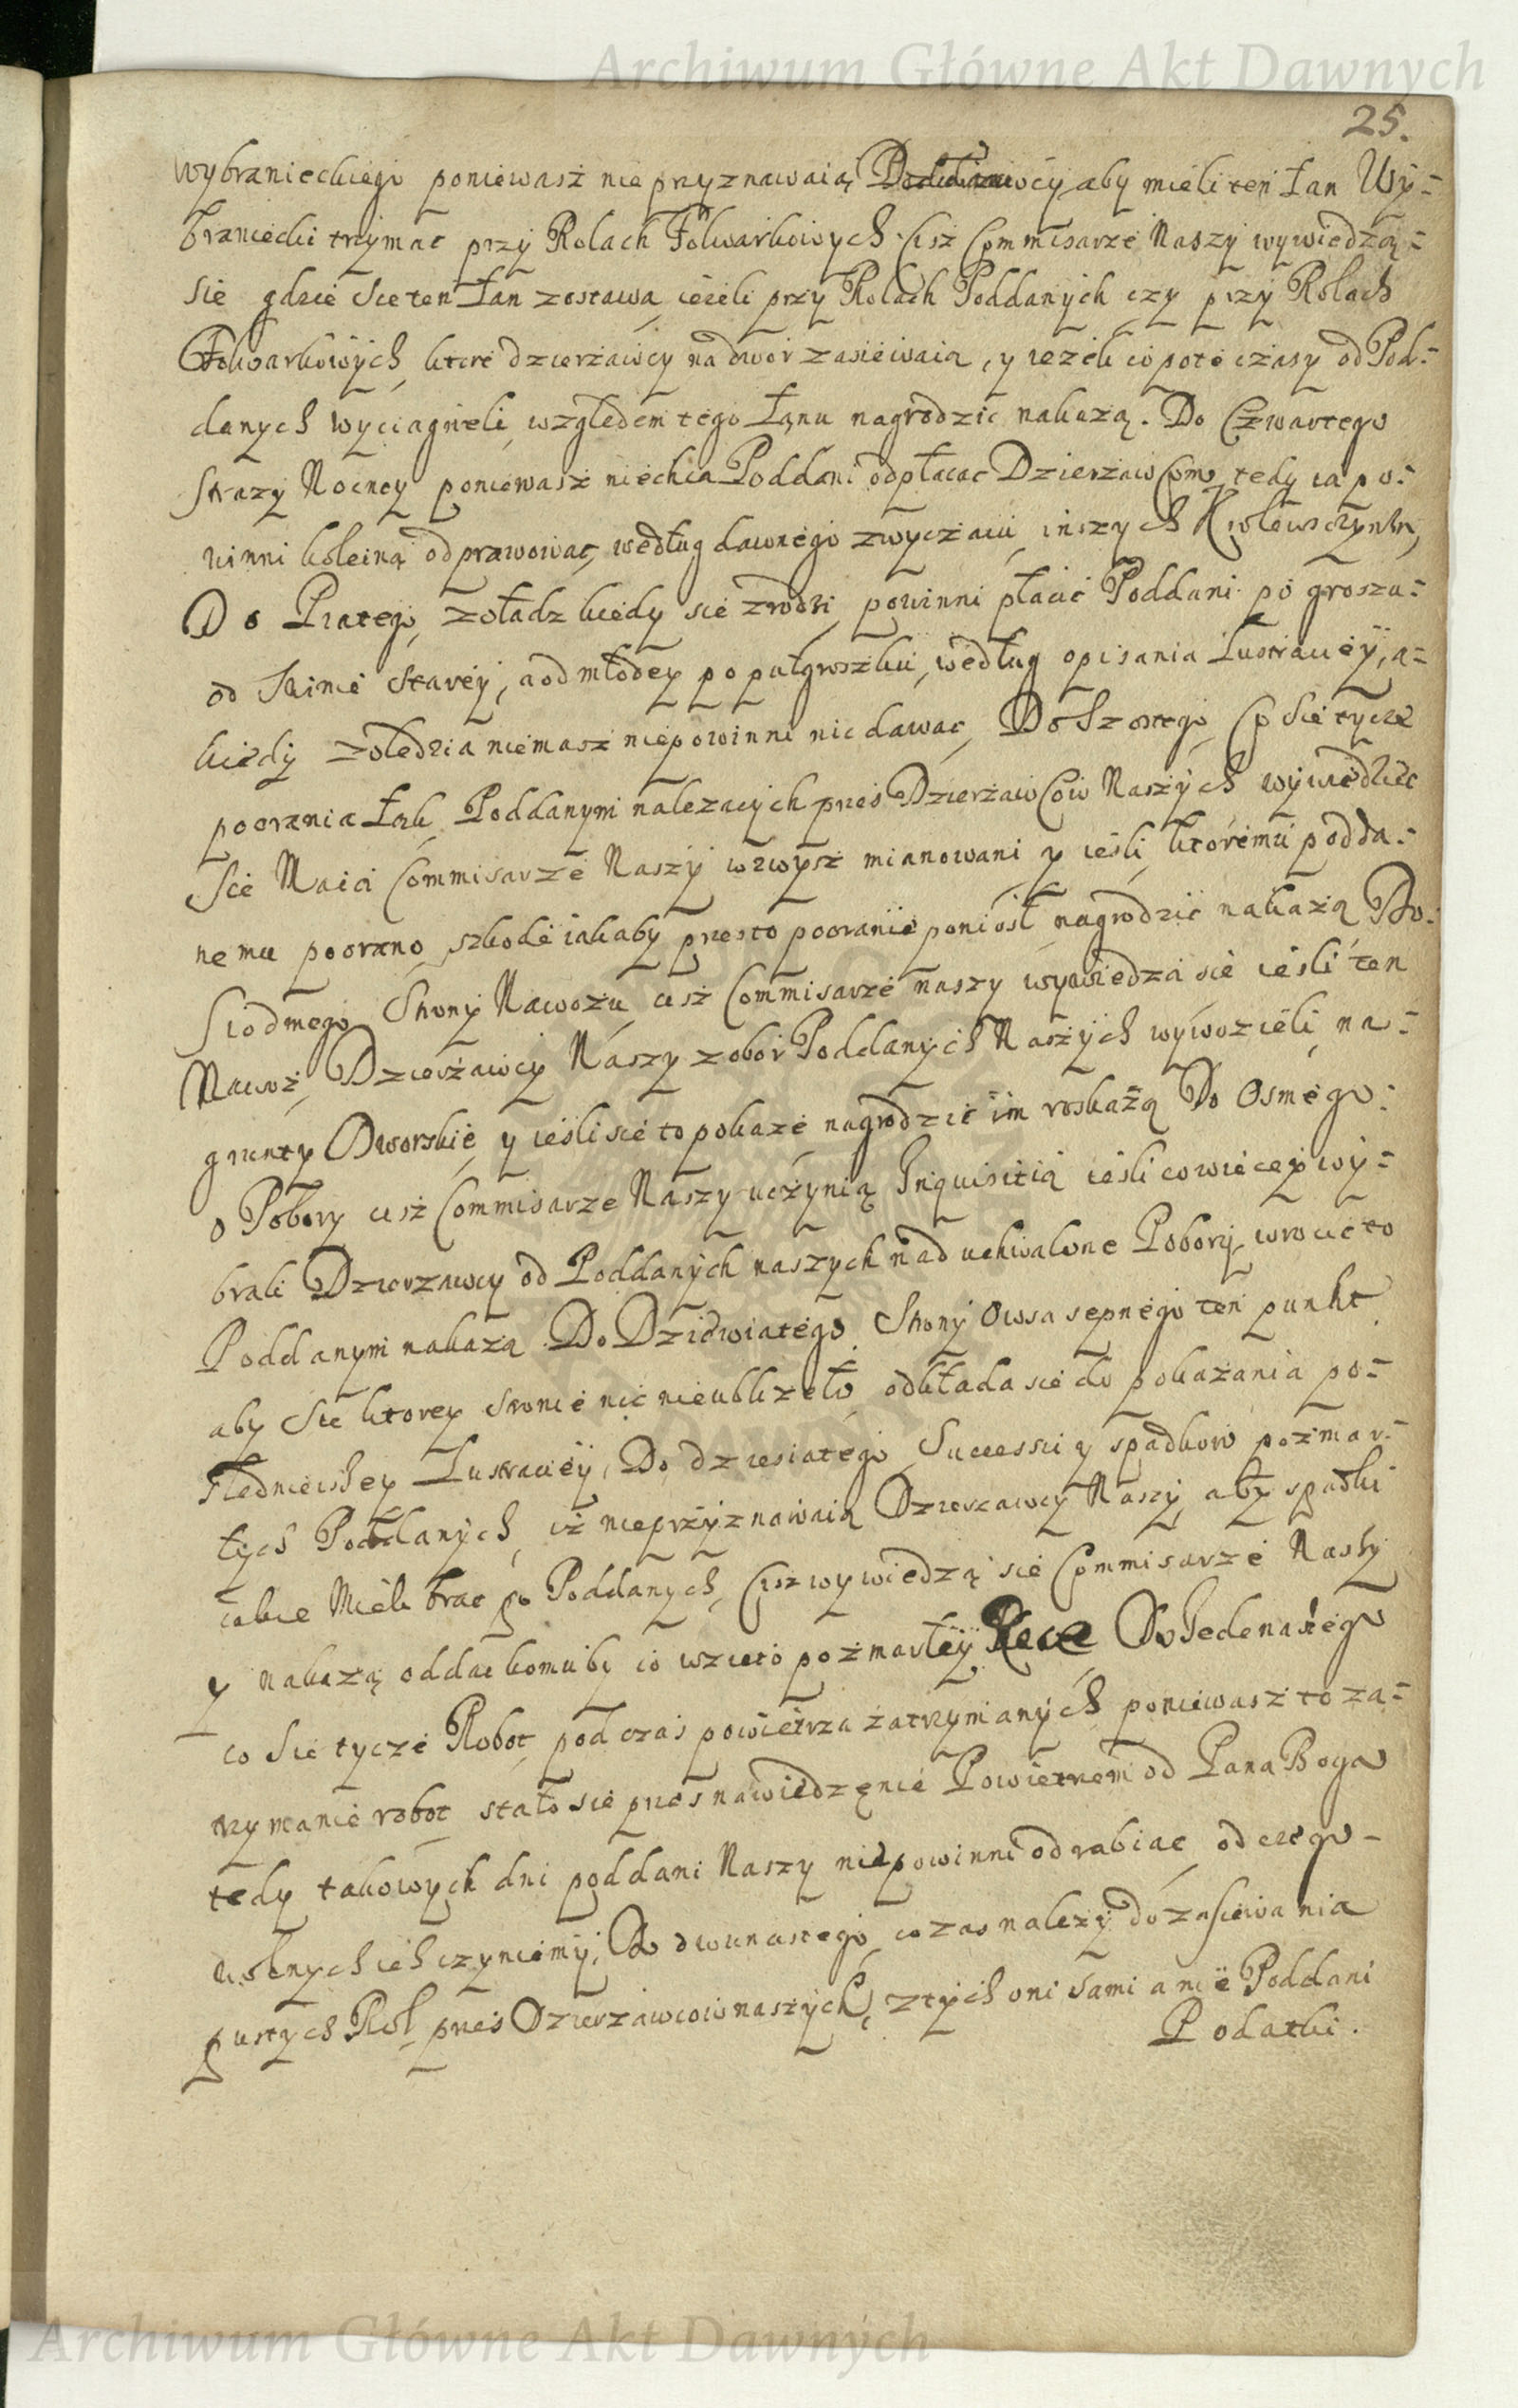 Archiwum Główne Akt Dawnych
25.
wybranieckiego poniewasz nie przyznawaią aby mieli ten Łan Wy=
braniecki trzymac przy Rolach Folwarkowych. Cisz Commisarze Naszy wywiedzą=
sie gdzie Sie ten Łan zostawa iezeli przy Rolach Poddanych czy przy Rolach
Folwarkowych, ktore dzierżawcy na dwor zasiewaią, y iezeli co pote czasy od Pod=
danych wyciagneli, względem tego Łanu nagrodzic nakażą. Do Czwartego
Strazy Nocney poniewasz niechca Poddani odpłacac Dzierżawcom, tedy ią po=
winni koleiną odprawowac, według dawnego zwyczaiu inszych Krolewsczyzn,
Do Piatego, zoładz kiedy sie zrodzi powinni płacic Poddani po groszu=
od Swinie Starey, a od młodey po pułgroszku, według opisania Lustracyey, a=
kiedy zołedzia niemasz niepowinni nic dawac, Do Szostego, Co Sie tycze
poorania Łąk Poddanym nalezących przes Dzierżawcow Naszych wywiedziec
Sie Maią Commisarze Naszy wzwysz mianowani y ieśli ktoremu podda=
nemu poorano, szkode iakaby przesto pooranie poniosł nagrodzic nakażą Do=
Siodmego, Strony Nawozu cisz Commisarze naszy wywiedzą sie ieśli ten
Nawoz, Dzierżawcy Naszy z obor Poddanych Naszych wywozieli, na=
grunty Dworskie, y ieśli sie to pokaze nagrodzic im roskażą Do Osmego=
o Pobory cisz Commisarze Naszy uczynią Inquisitią ieśli co wiecey wy=
brali Dzierzawcy od Poddanych naszych nad uchwalone Pobory, wrocic to
Poddanym nakażą. Do Dziewiatego. Strony Owsa sepnego ten punkt
aby Sie ktorey stronie nic nieublizeło odkłada sie do pokazania po=
slednieiszey Lustracyey, Do dziesiatego, Successii y spadkow pozmar=
łych Poddanych, iż nieprzyznawaią Dzierzawcy Naszy, aby spadki
iakie Mieli brac po Poddanych, Cisz wywiedzą sie Commisarze Naszy
y nakażą oddac komuby co wzieto po zmarłey Rece Do Jedenastego
co Sie tycze Robot, pod czas powietrza zatrzymanych poniewasz to za=
trzymanie robot, stało sie przes nawiedzenie Powietrzem od Pana Boga
tedy takowych dni poddani Naszy niepowinni odrabiac, od czego=
wolnych ich czyniemy, Do dwunastego, co zas nalezy do zasiewania
pustych Rol, przes Dzierzawcow naszych, z tych oni Sami a nie Poddani
Podatki.
Archiwum Główne Akt Dawnych